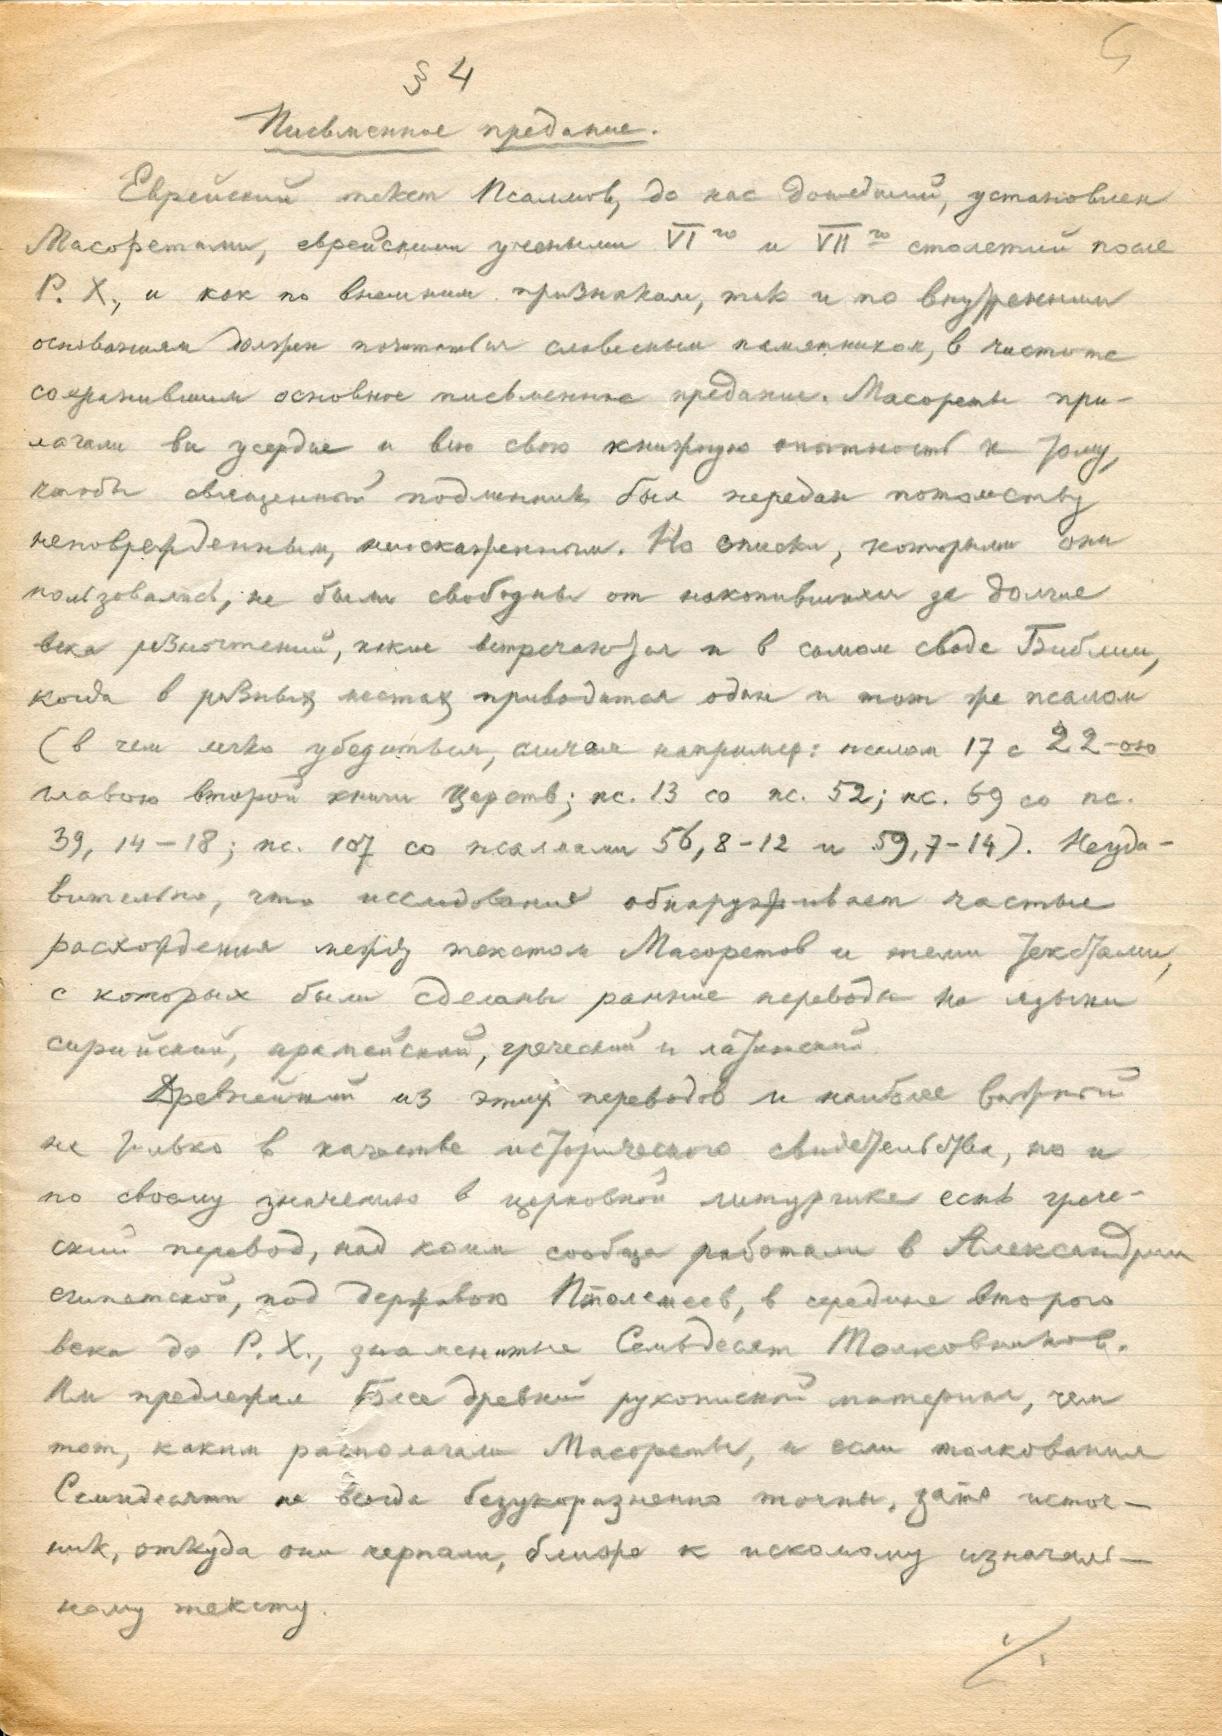 5
§ 4
Письменное предание.
Еврейский текст Псалмов, до нас дошедший, установлен
Масоретами, еврейскими учеными VI го и VII го столетий после
Р. Х., и как по внешним признакам, так и по внутренним
основаниям должен почитаться словесным памятником, в чистоте
сохранившим основное письменное предание. Масореты при-
лагали все усердие и всю свою книжную опытность к тому,
чтобы священный подлинник был передан потомству
неповрежденным, неискаженным. Но списки, которыми они
пользовались, не были свободны от накопившихся за долгие
века разночтений, какие встречаются и в самом своде Библии,
когда в разных местах приводится один и тот же псалом
(в чем легко убедиться, сличая например: псалом 17 с 22-ою
главою второй книги Царств; пс. 13 со пс. 52; пс. 69 со пс.
39, 14-18; пс. 107 со псалмами 56, 8-12 и 59, 7-14). Неуди-
вительно, что исследование обнаруживает частые
расхождения между текстом Масоретов и теми текстами,
с которых были сделаны ранние переводы на языки
сирийский, арамейский, греческий и латинский.
Древнейший из этих переводов и наиболее важный
не только в качестве исторического свидетельства, но и
по своему значению в церковной литургике есть грече-
ский перевод, над коим сообща работали в Александрии
египетской, под державою Птолемеев, в середине второго
века до Р. Х., знаменитые Семьдесят Толковников.
Им предлежал более древний рукописный материал, чем
тот, каким располагали Масореты, и если толкования
Семидесяти не всегда безукоризненно точны, зато источ-
ник, откуда они черпали, ближе к искомому изначаль-
ному тексту.
./.